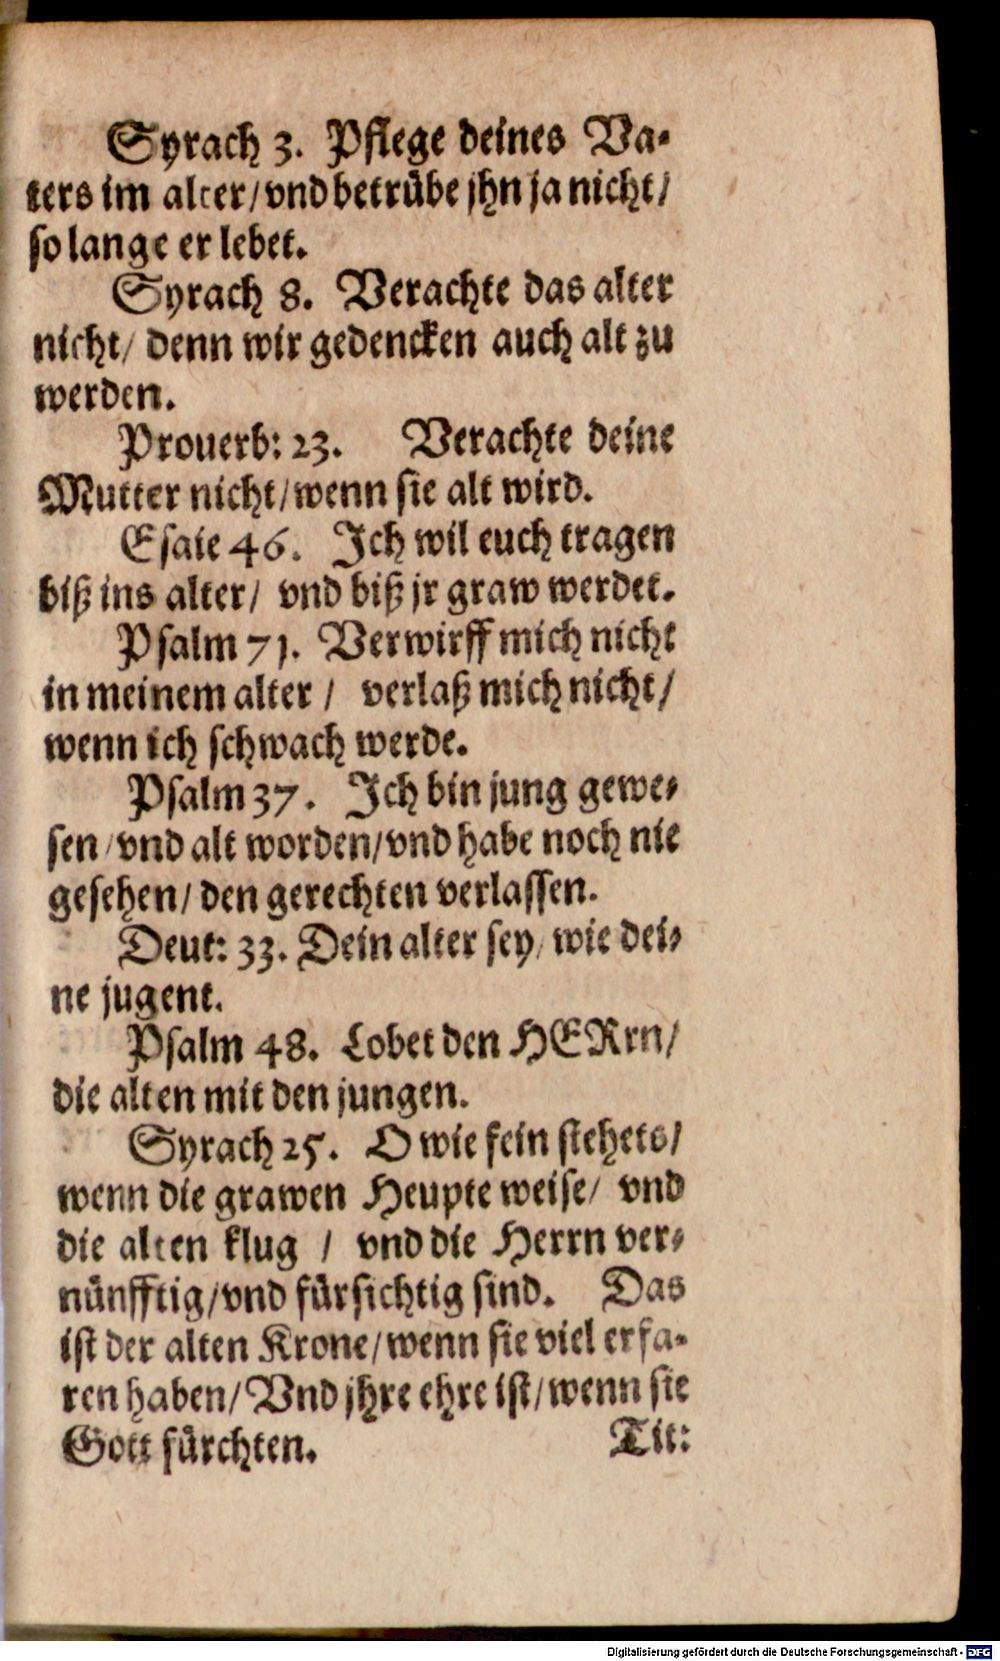 Syrach 3. Pflege deines Va-
ters im alter/vnd betrübe jhn ja nicht/
so lange er lebet.
Syrach 8. Verachte das alter
nicht/ denn wir gedencken auch alt zu
werden.
Prouerb: 23. Verachte deine
Mutter nicht/wenn sie alt wird.
Esaie 46. Ich wil euch tragen
biß ins alter/ vnd biß jr graw werdet.
Psalm 71. Verwirff mich nicht
in meinem alter / verlaß mich nicht/
wenn ich schwach werde.
Psalm 37. Ich bin jung gewe-
sen/vnd alt worden/vnd habe noch nie
gesehen/ den gerechten verlassen.
Deut: 33. Dein alter sey/ wie dei-
ne jugent.
Psalm 48. Lobet den HERrn/
die alten mit den jungen.
Syrach 25. O wie fein stehets/
wenn die grawen Heupte weise/ vnd
die alten klug / vnd die Herrn ver-
nünfftig/vnd fürsichtig sind. Das
ist der alten Krone/wenn sie viel erfa-
ren haben/Vnd jhre ehre ist/wenn sie
Gott fürchten. Tit:
Digitalisierung gefördert durch die Deutsche Forschungsgemeinschaft - DFG